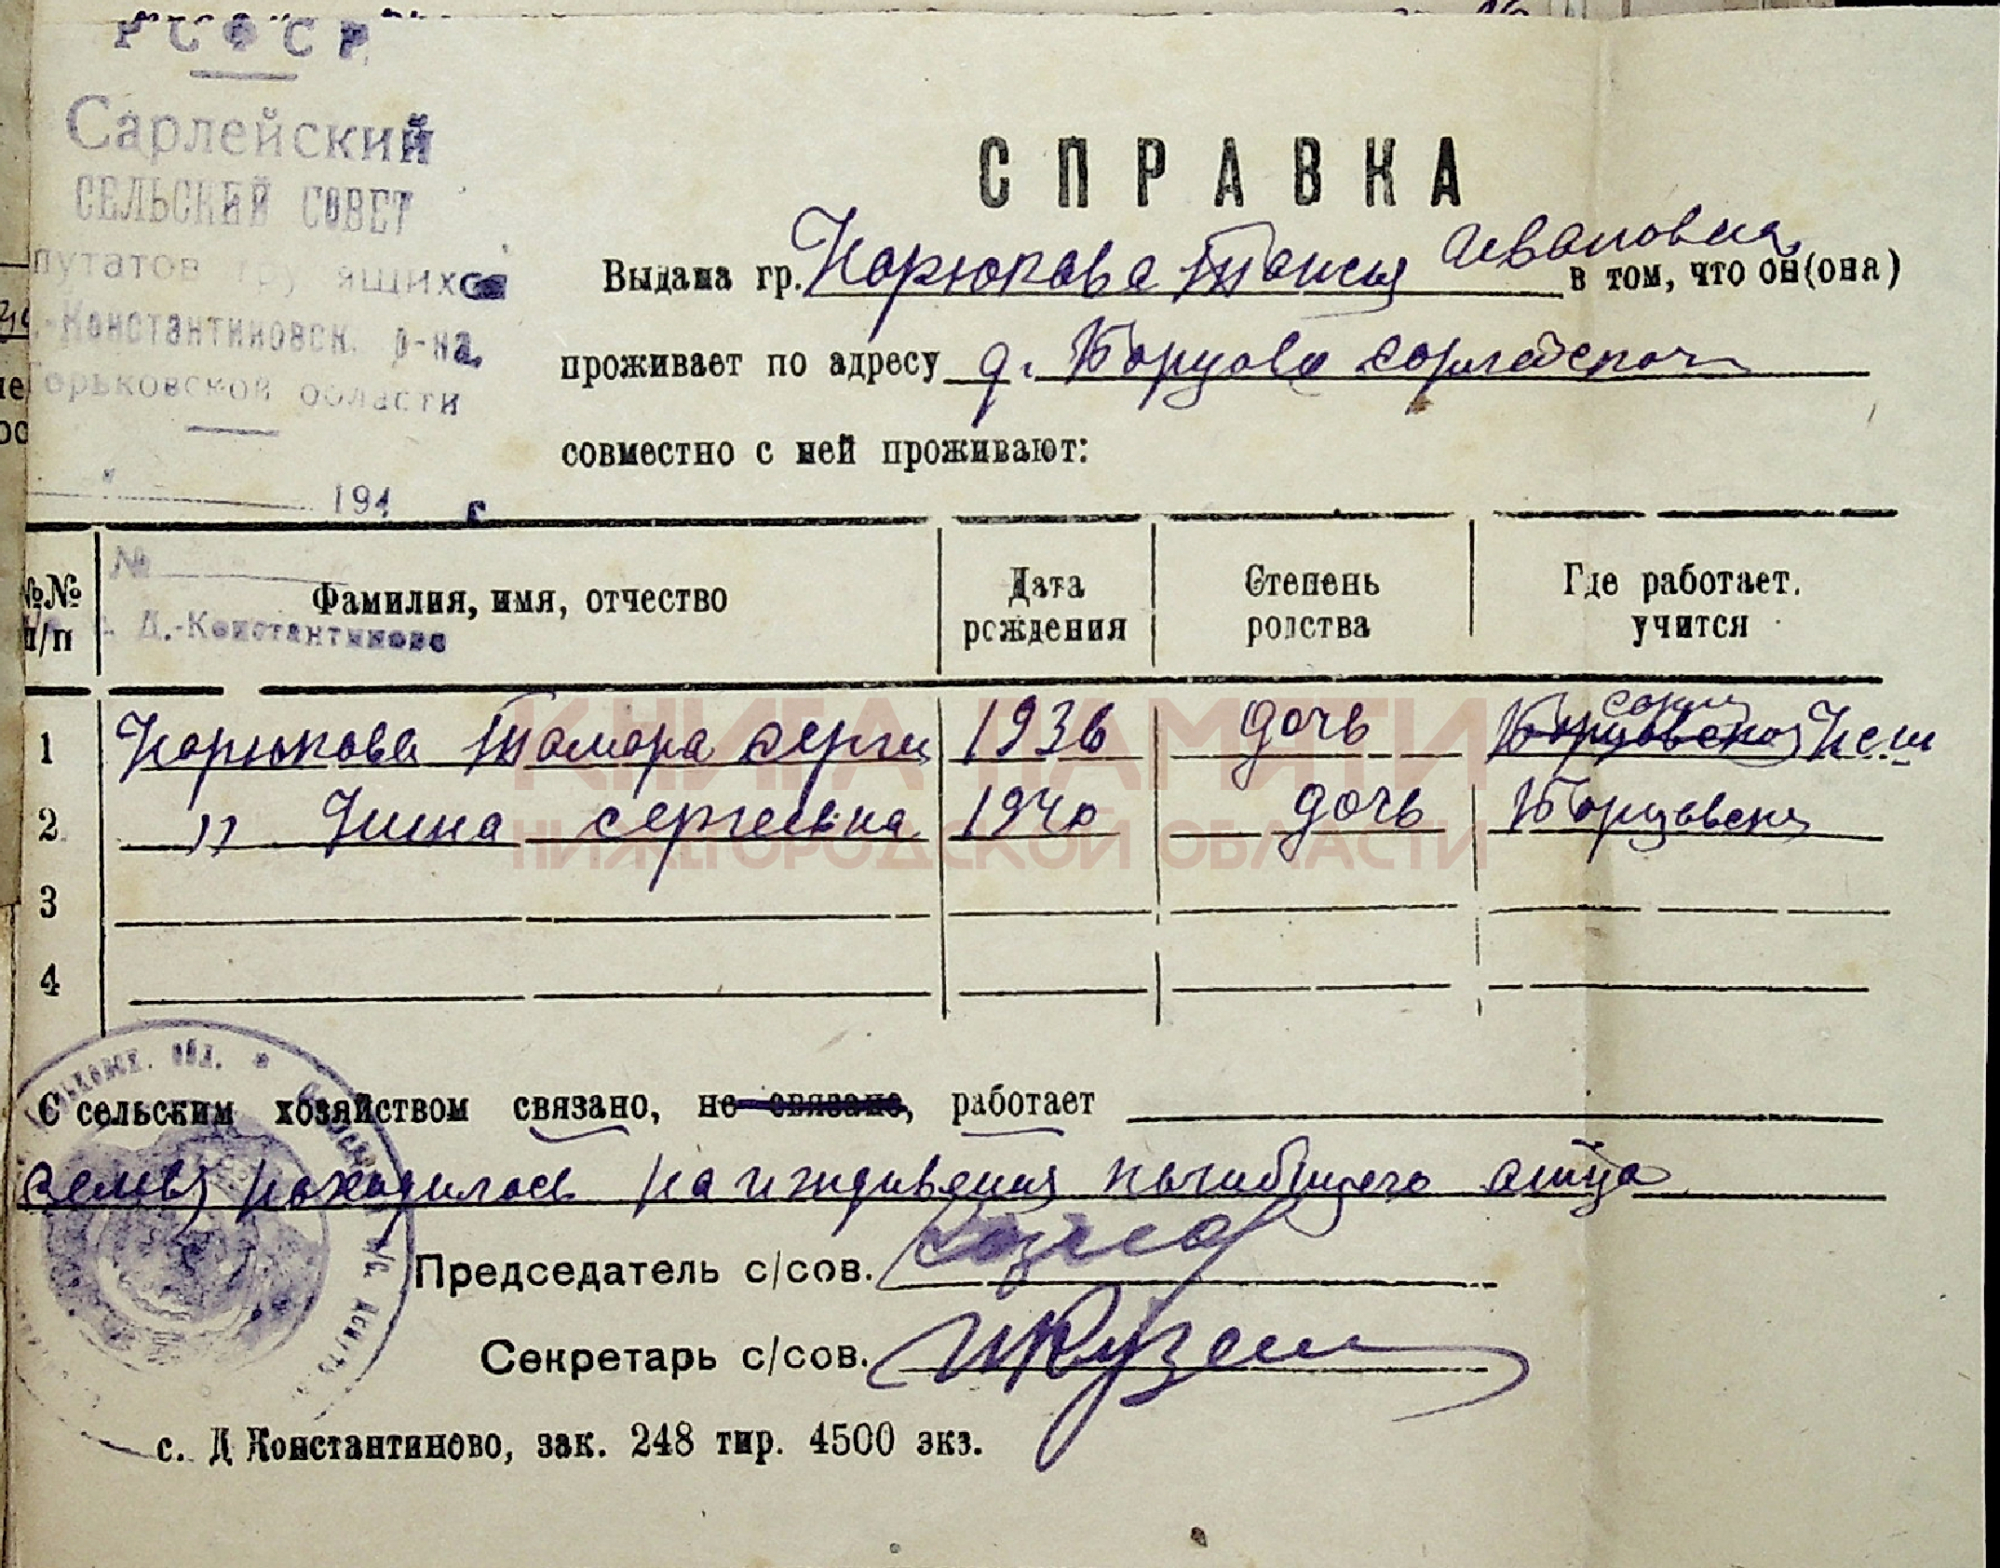 РСФСР
Сарлейский
СЕЛЬСКИЙ СОВЕТ
путатов трудящихся
.-Константиновск. р-на,
Горьковской области
194 г.
№
с. Д.-Константиново
СПРАВКА
Выдана гр. Корюкова Таисия Ивановна в том, что он(она)
проживает по адресу д. Борцово Сарлейского
совместно с ней проживают:
№№ п/п Фамилия, имя, отчество Дата рождения Степень родства Где работает, учится
1 Корюкова Тамара Серги 1936 дочь Борцовская Сарл
2 " Нина Сергеевна 1940 дочь Борцовская
3
4
С сельским хозяйством связано, не связано, работает
семья находилась на иждивения погибшего отца
Председатель с/сов.
Секретарь с/сов.
с. Д Константиново, зак. 248 тир. 4500 экз.
КНИГА ПАМЯТИ
НИЖЕГОРОДСКОЙ ОБЛАСТИ